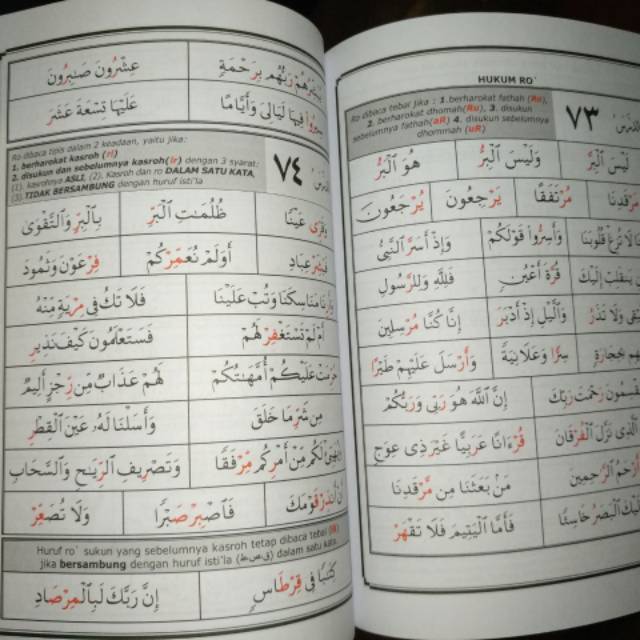 HUKUM RO'
Ro dibaca tebal jika : 1.berharokat fathah (Ra),
2. berharokat dhomah(Ru), 3. disukun
sebelumnya fathah(aR) 4. disukun sebelumnya
dhommah (uR)
٧٣
لَيْسَ الْبِرَّ وَلَيْسَ الْبِرُّ هُوَ الْبَرُّ
مَرْقَدِنَا مُرْتَفَقًا يَرْجِعُونَ يُرْجَعُونَ
لَا تُزِغْ قُلُوبَنَا وَأَسِرُّوا قَوْلَكُمْ وَإِذْ أَسَرَّ النَّبِيُّ
قُرَّةَ أَعْيُنٍ فَلِلَّهِ وَلِلرَّسُولِ
وَالَّيْلِ إِذْ أَدْبَرَ إِنَّا كُنَّا مُرْسِلِينَ
سِرًّا وَعَلَانِيَةً وَأَرْسَلَ عَلَيْهِمْ طَيْرًا
رَحْمَتَ رَبِّكَ إِنَّ اللَّهَ هُوَ رَبِّي وَرَبُّكُمْ
الَّذِي نَزَّلَ الْفُرْقَانَ قُرْءَانًا عَرَبِيًّا غَيْرَ ذِي عِوَجٍ
أَرْحَمُ الرَّاحِمِينَ مَنْ بَعَثَنَا مِنْ مَرْقَدِنَا
إِلَيْكَ الْبَصَرُ خَاسِئًا فَأَمَّا الْيَتِيمَ فَلَا تَقْهَرْ
بِرَحْمَةٍ عِشْرُونَ صَابِرُونَ
فِيهَا لَيَالِيَ وَأَيَّامًا عَلَيْهَا تِسْعَةَ عَشَرَ
Ro dibaca tipis dalam 2 keadaan, yaitu jika:
1. berharokat kasroh (ri)
2. disukun dan sebelumnya kasroh(ir) dengan 3 syarat:
(1). kasrohnya ASLI, (2). Kasroh dan ro DALAM SATU KATA,
(3). TIDAK BERSAMBUNG dengan huruf isti'la
٧٤
وَقَرِّي عَيْنًا ظُلُمَاتِ الْبَرِّ بِالْبِرِّ وَالتَّقْوَىٰ
فَبَشِّرْ عِبَادِ أَوَلَمْ نُعَمِّرْكُمْ فِرْعَوْنَ وَثَمُودَ
وَأَرِنَا مَنَاسِكَنَا وَتُبْ عَلَيْنَا فَلَا تَكُ فِي مِرْيَةٍ مِنْهُ
أَمْ لَمْ تَسْتَغْفِرْ لَهُمْ فَسَتَعْلَمُونَ كَيْفَ نَذِيرِ
حُرِّمَتْ عَلَيْكُمْ أُمَّهَاتُكُمْ لَهُمْ عَذَابٌ مِنْ رِجْزٍ أَلِيمٌ
مِنْ شَرِّ مَا خَلَقَ وَأَسَلْنَا لَهُ عَيْنَ الْقِطْرِ
لَكُمْ مِنْ أَمْرِكُمْ مِرْفَقًا وَتَصْرِيفِ الرِّيَاحِ وَالسَّحَابِ
أَنْ أَنْذِرْ قَوْمَكَ فَاصْبِرْ صَبْرًا وَلَا تُصَعِّرْ
Huruf ro' sukun yang sebelumnya kasroh tetap dibaca tebal (iR)
jika bersambung dengan huruf isti'la (ق ص ط) dalam satu kata.
كِتَابًا فِي قِرْطَاسٍ إِنَّ رَبَّكَ لَبِالْمِرْصَادِ